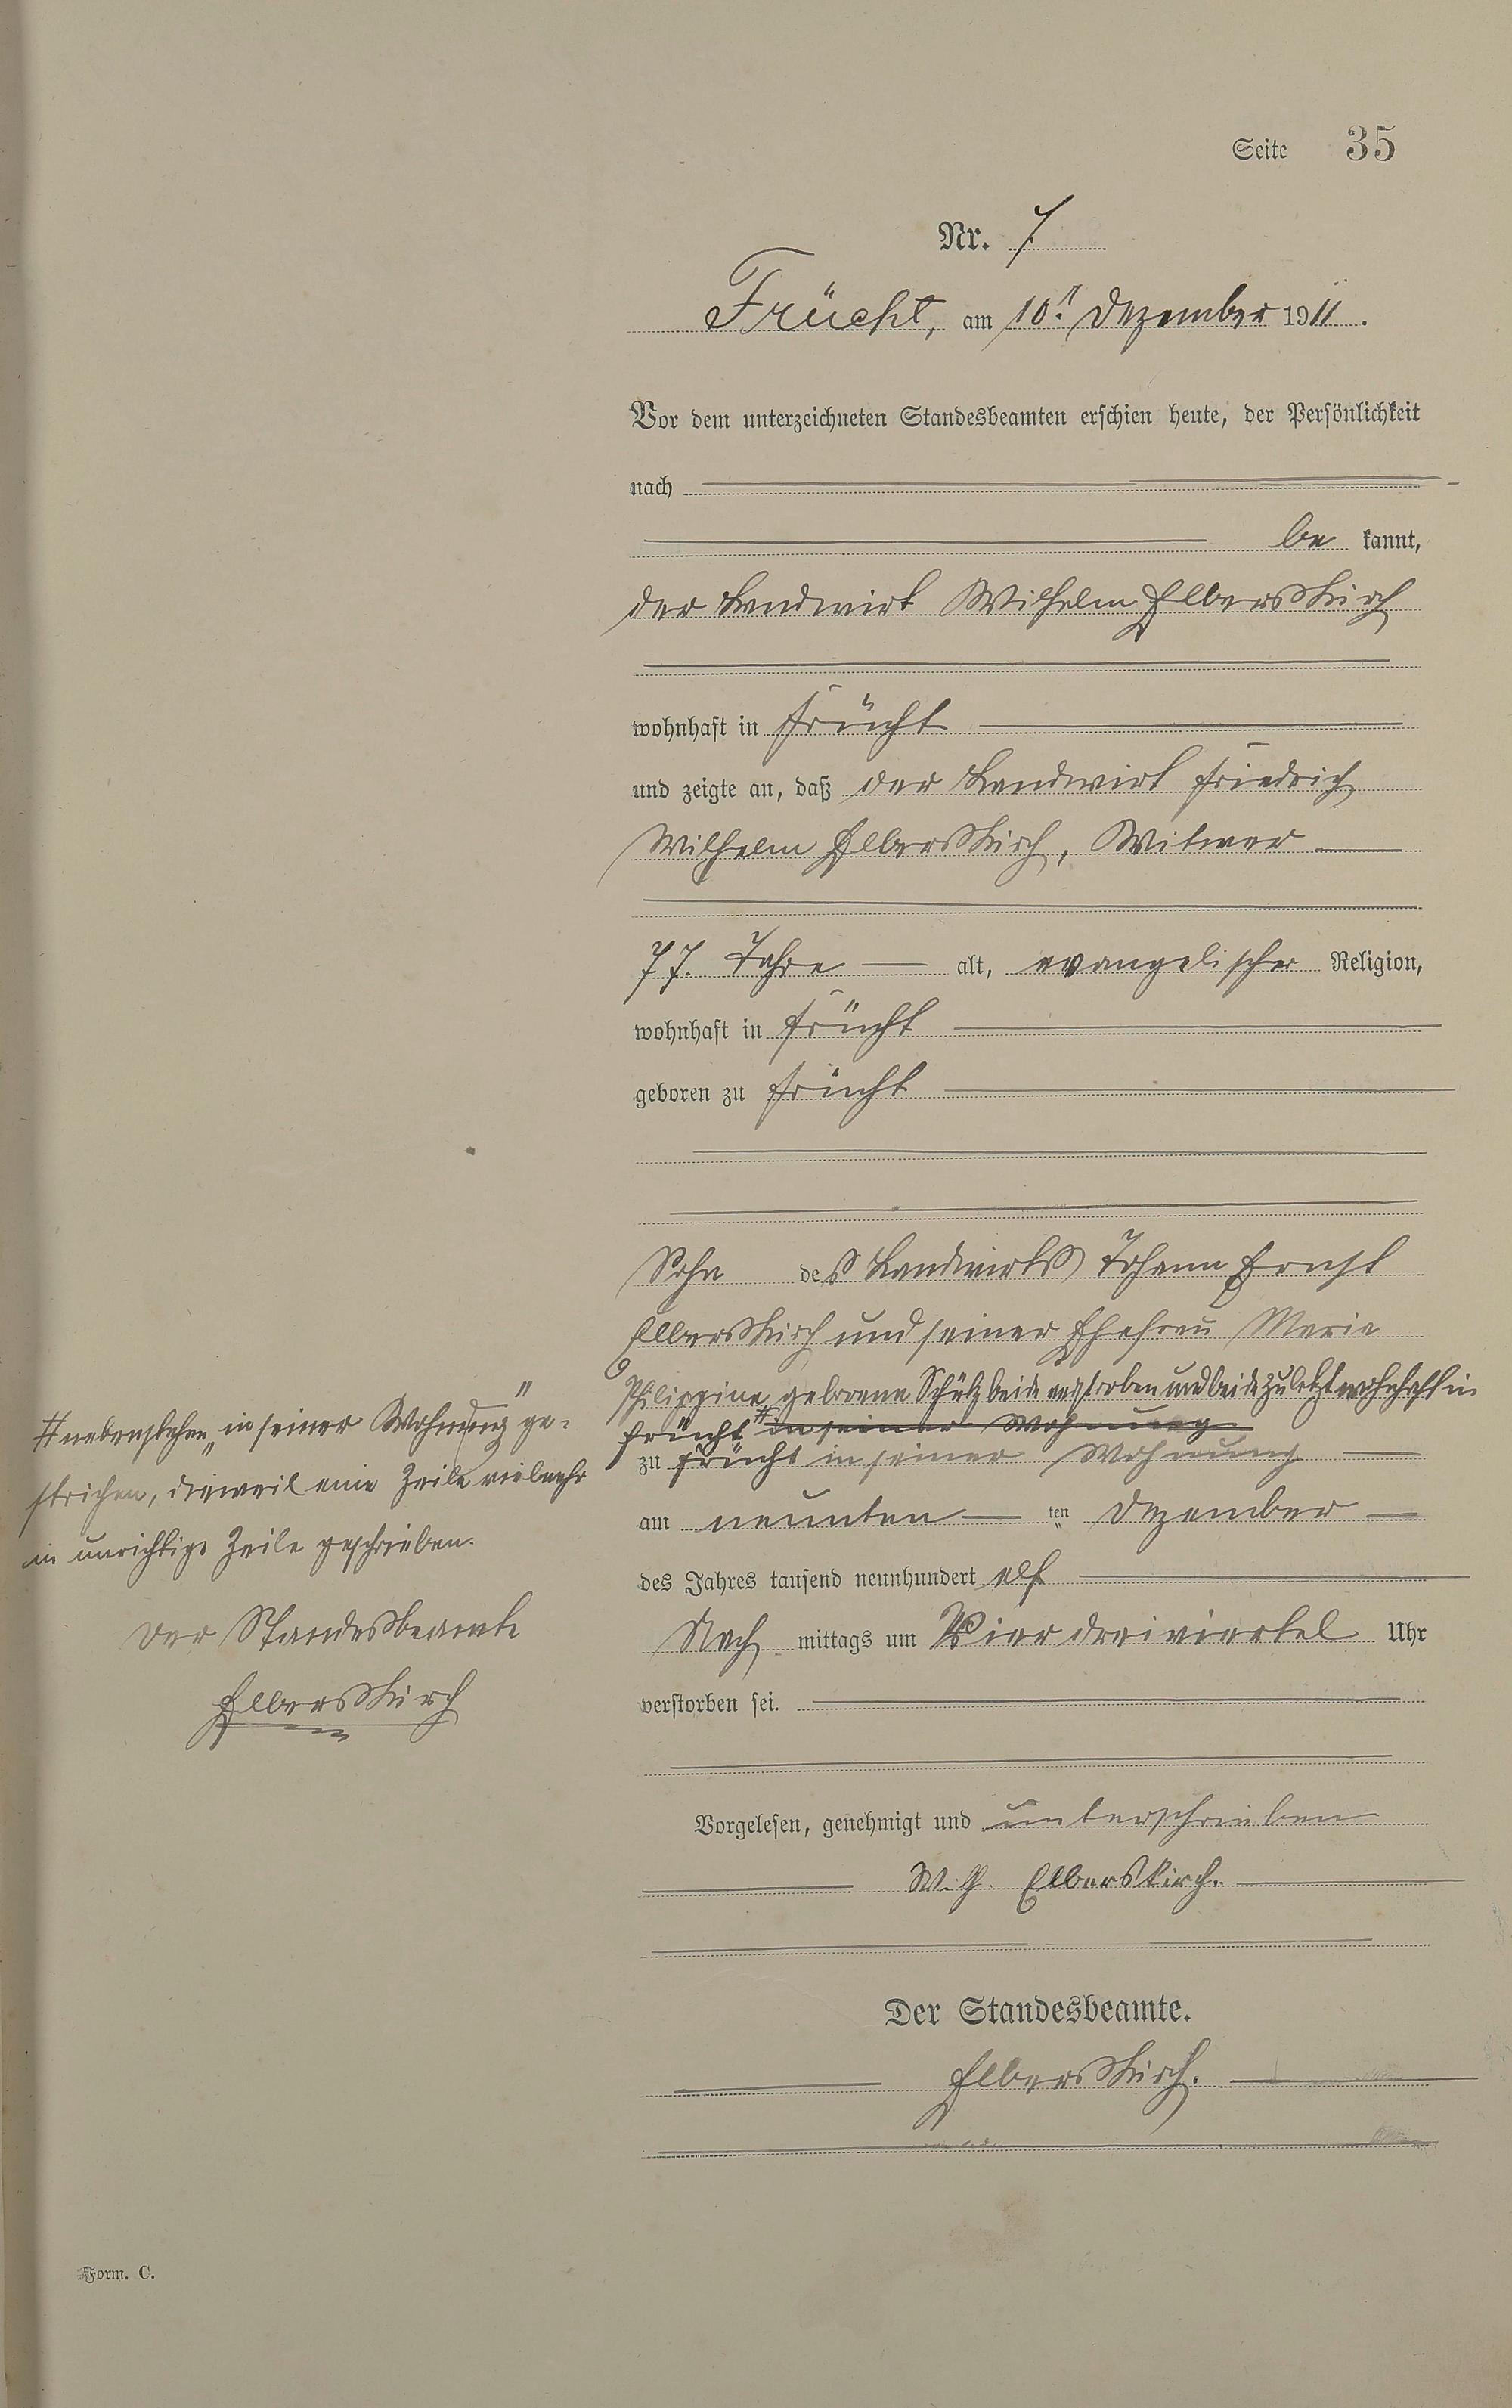 Seite 35
Nr. 7
Frücht, am 10t. Dezember 1911.
Vor dem unterzeichneten Standesbeamten erschien heute, der Persönlichkeit
nach
be kannt,
der Landwirt Wilhelm Elberskirch
wohnhaft in Frücht
und zeigte an, daß der Landwirt Friedrich
Wilhelm Elberskirch, Witwer
77. Jahre alt, evangelischer Religion,
wohnhaft in Frücht
geboren zu Frücht
Sohn des Landwirts Johann Ernst
Elberskirch und seiner Ehefrau Marie
Philippine, geborene Schütz beide verstorben und beide zuletzt wohnhaft in
Frücht # in seiner Wohnung
zu Frücht in seiner Wohnung
am neunten ten Dezember
des Jahres tausend neunhundert elf
Nach mittags um Vier dreiviertel Uhr
verstorben sei.
Vorgelesen, genehmigt und unterschrieben
W. Elberskirch.
Der Standesbeamte.
Elberskirch.
# nebenstehen „in seiner Wohnung" ge-
strichen, dieweil eine Zeile vielmehr
in unrichtige Zeile geschrieben.
Der Standesbeamte
Elberskirch
Form. C.